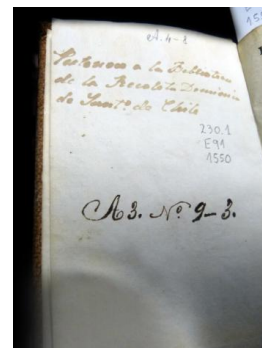 A. 4-8
Pertenece a la Biblioteca
de la Recoleta Dominica
de Sant.º de Chile
230.1
E91
1550
A3. Nº 9-3.